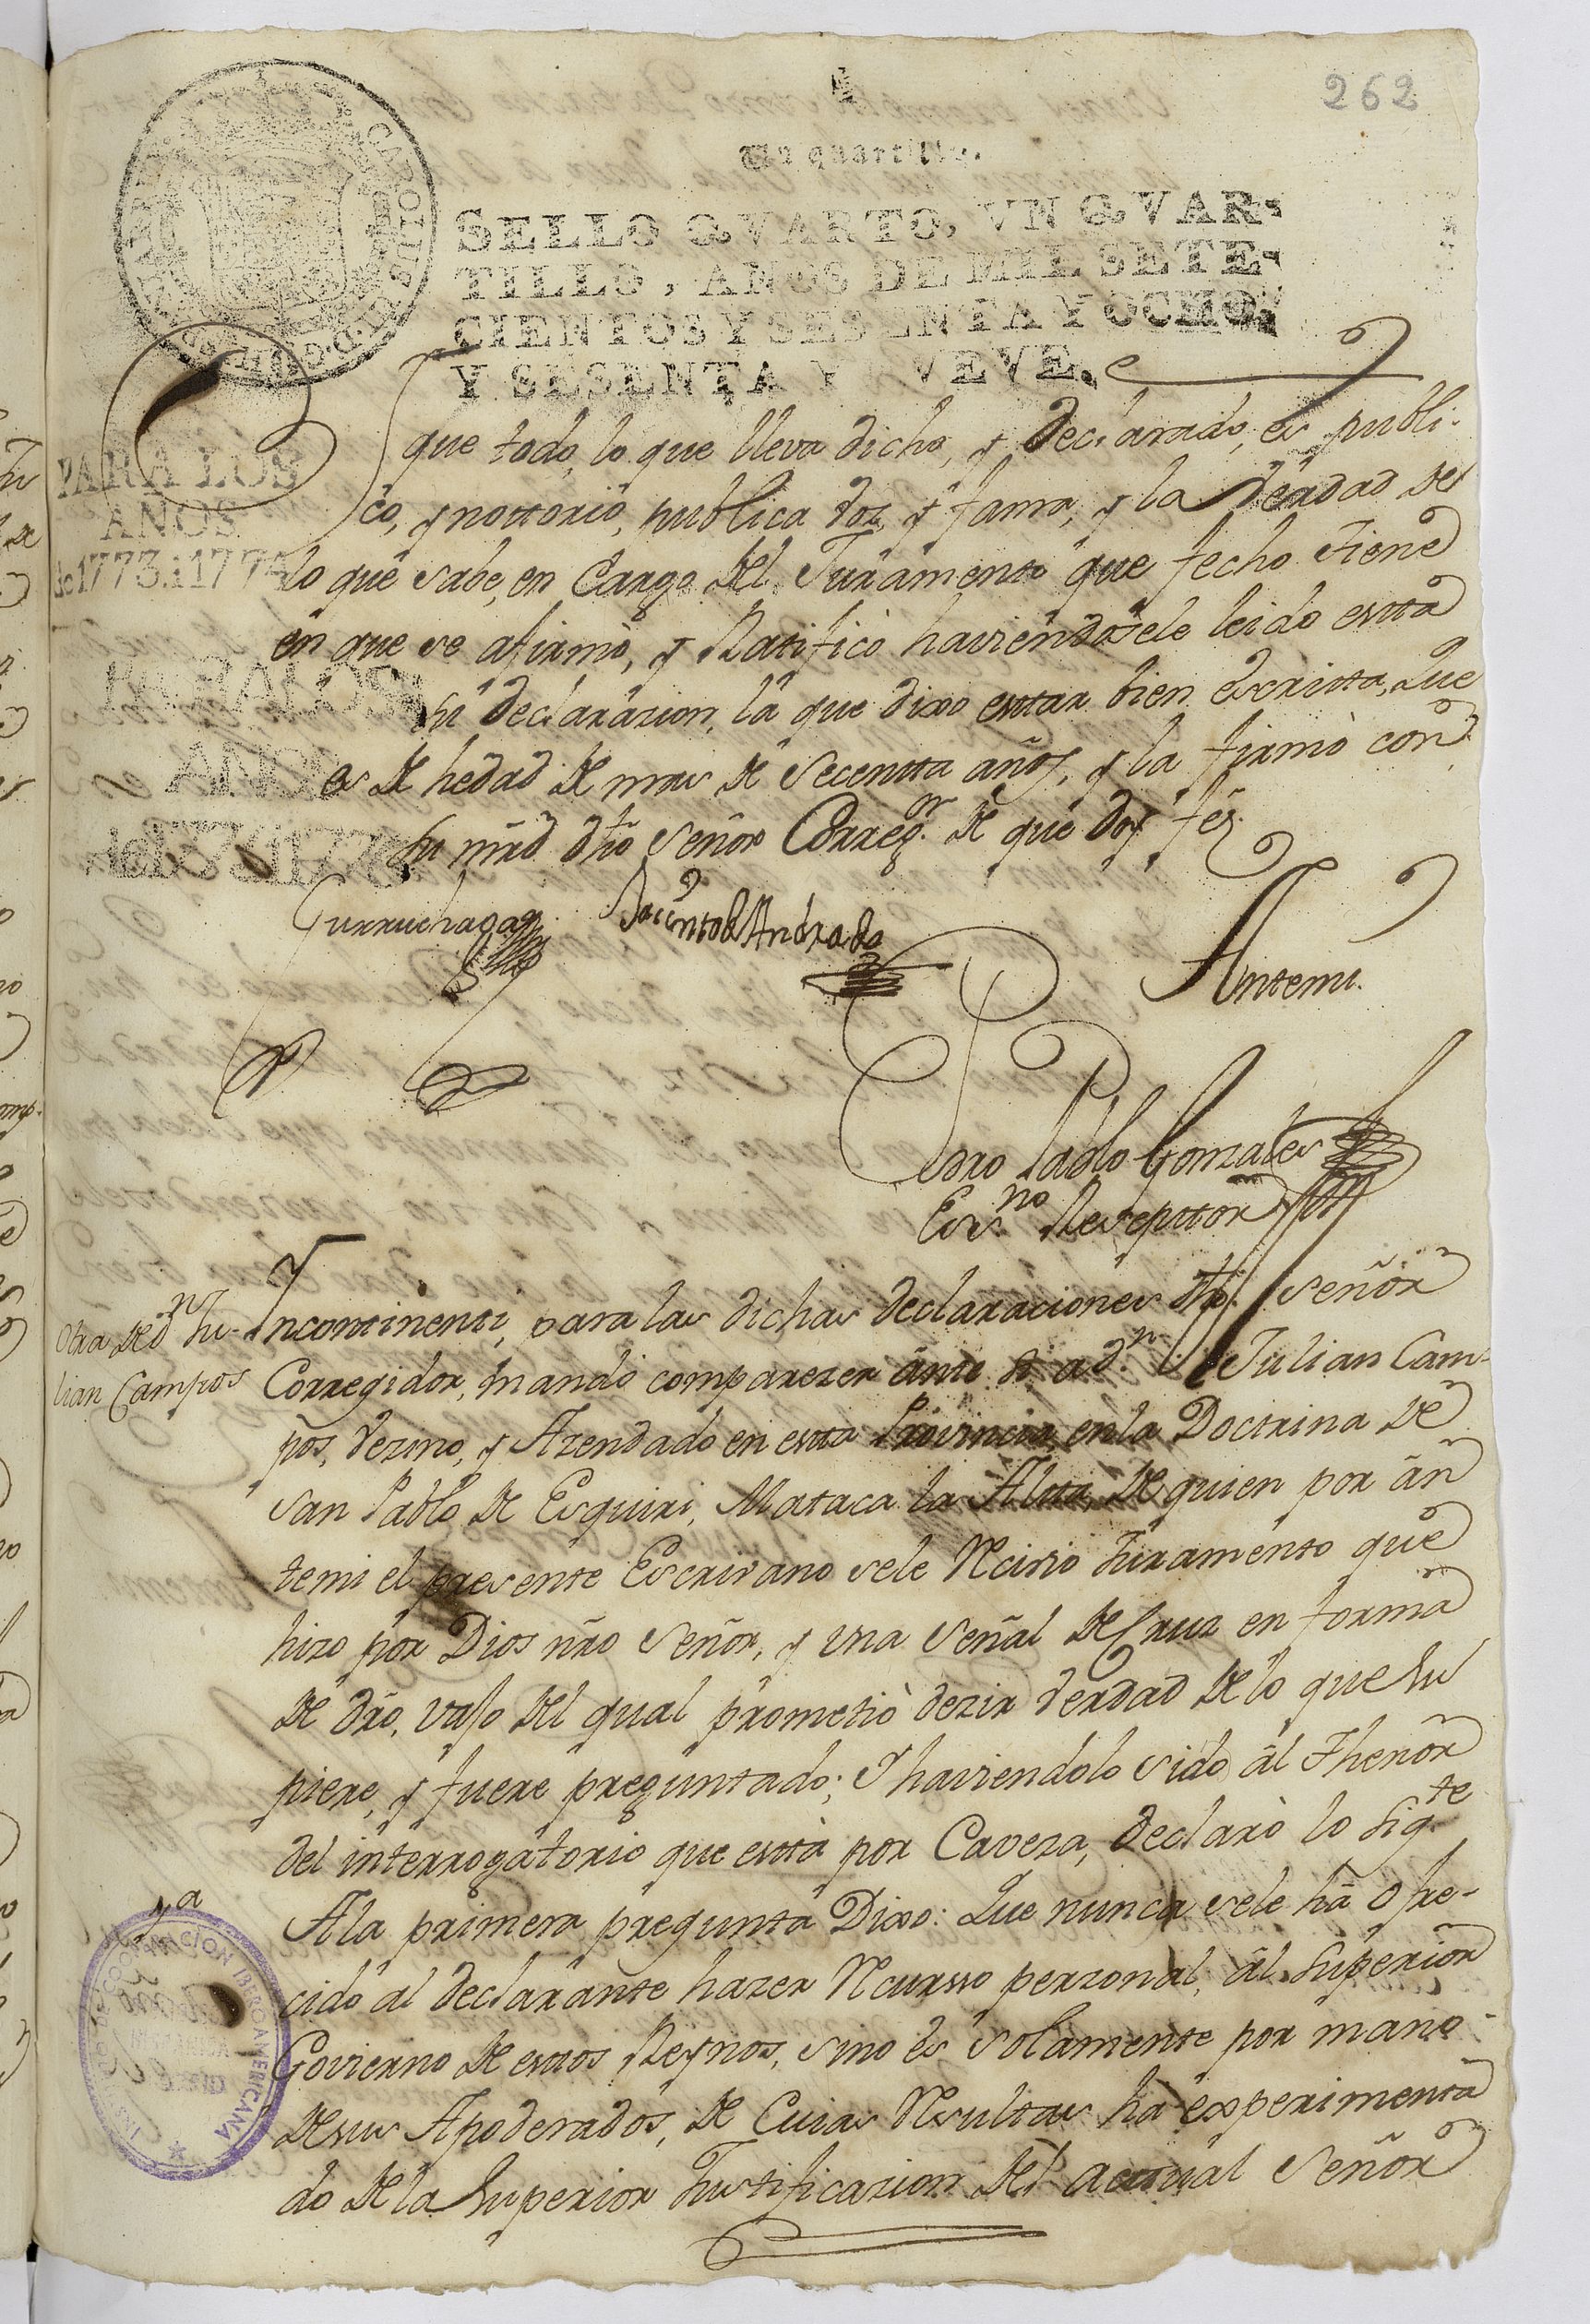 262
Un quartillo.
CAROLUS III D.G.
SELLO QVARTO, VN QVAR-
TILLO, AÑOS DE MIL SETE-
CIENTOS Y SESENTA Y OCHO,
Y SESENTA Y NVEVE.
PARA LOS
AÑOS
de 1773. i 1774
PARA LOS
AÑOS
que todo, lo que lleva dicho, y declarado, es publi-
co, y nottorio, publica voz, y fama, y la verdad de
lo que save, en Cargo del Juramento que fecho tiene
en que se afirmò, y Ratificò haviendosele leido estta
su declarazion, la que dixo esttar bien escritta, Que
es de hedad de mas de Secentta años, y la firmò con
su mrd dho Señor Correg.or de que doy feé
Gurruchaga
Jacinto de Andrade
Antemi.
Pedro Pablo Gonzales
Ess.no Reseptor
Otra de d.n Ju-
lian Campos
Incontinenti, para las dichas declaraciones dho Señor
Corregidor, mandò comparezer ante si a d.n Julian Cam-
pos, vezino, y Azendado en estta Provincia, en la Doctrina de
San Pablo de Esquiri, Mataca la Alta, de quien por an
temi el presente Escrivano sele Recivio Juramento que
hizo por Dios nrõ Señor, y una Señal de Cruz en forma
de drõ, vajo del qual prometiò dezir verdad de lo que su
piere, y fuere preguntado; Y haviendolo sido âl Thenor
del interrogatorio que esttà por Caveza, declarò lo sig.te
1.a
Ala primera pregunta Dixo: Que nunca sele hà ofre-
cido al declarante hazer Recursso perzonal, âl Superior
Govierno de esttos Reynos, sino es solamente por mano
de sus Apoderados, de Cuias Resultas hà experimenta
do de la Superior Justificazion del acttual Señor
INSTITUTO DE COOPERACION IBEROAMERICANA